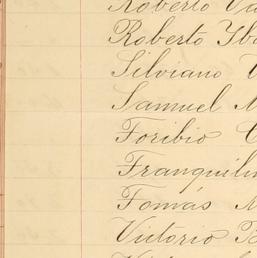 Roberto Va
Roberto Yb
Silviano
Samuel M
Toribio C
Tranquilin
Tomás M
Victorio B